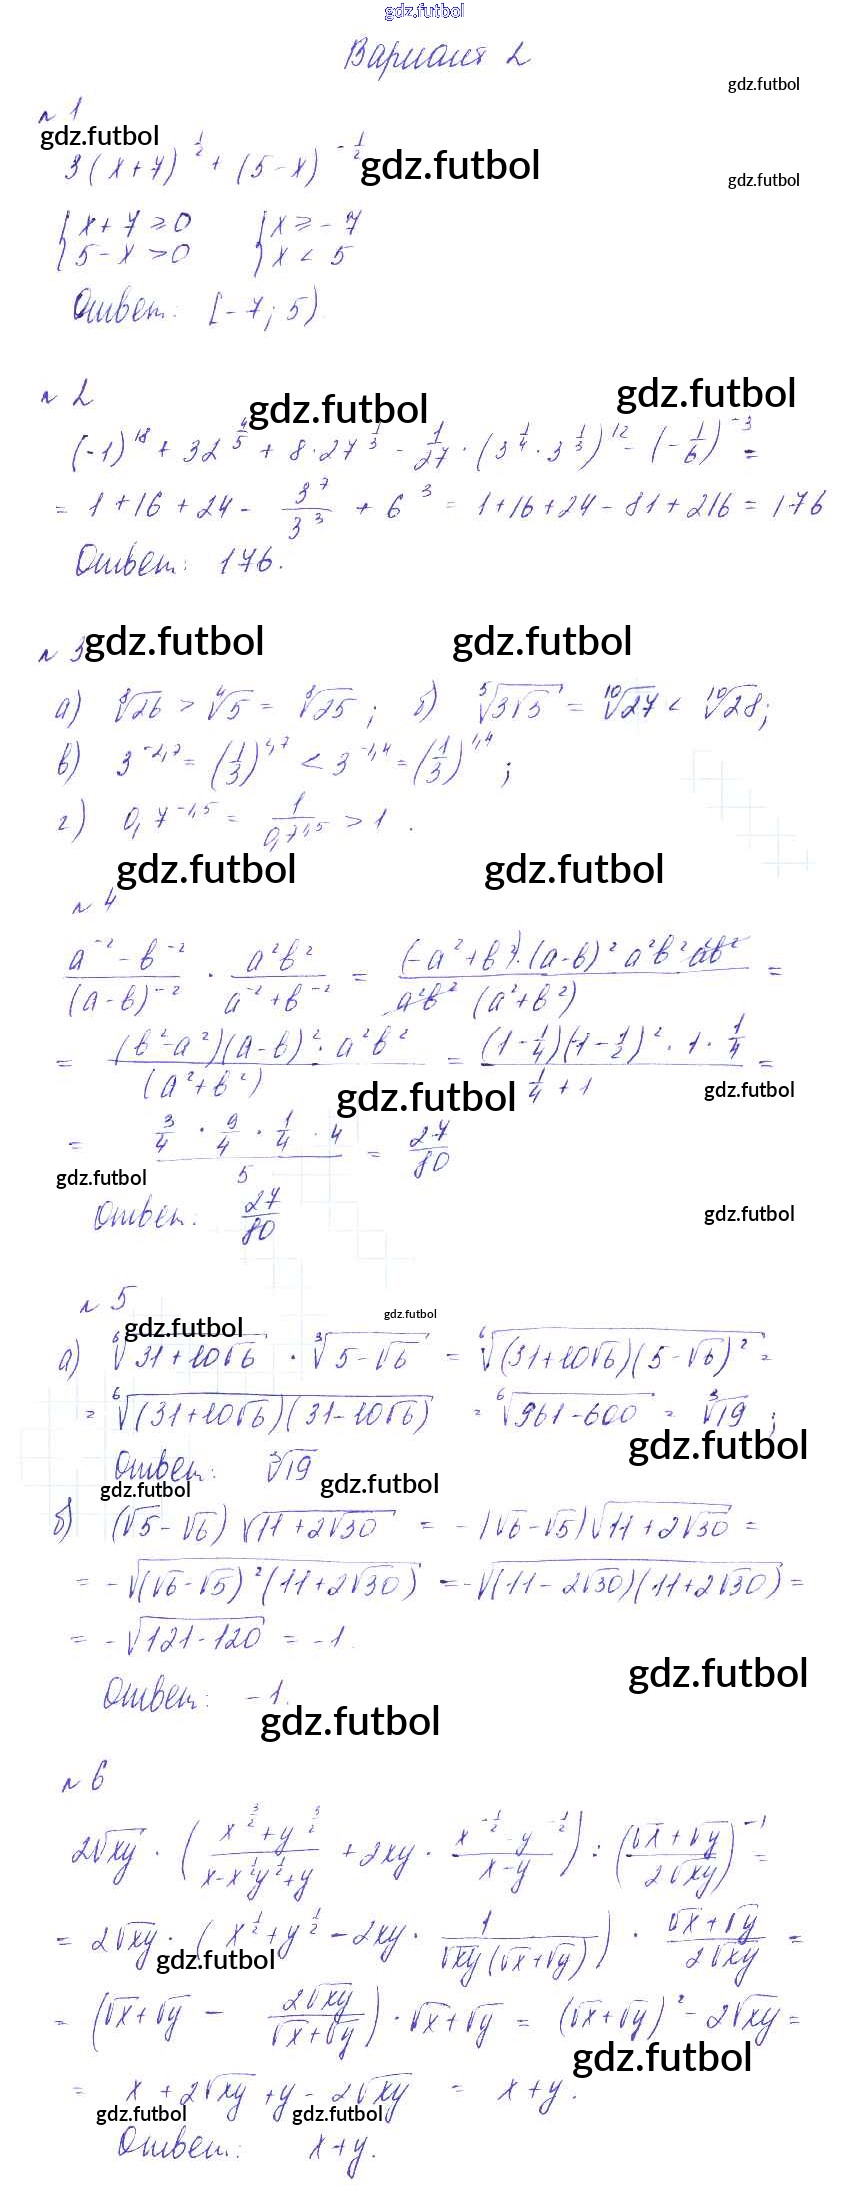 gdz.futbol
Вариант 2
gdz.futbol
№ 1
gdz.futbol
3(x+7)^(1/2) + (5-x)^(-1/2)
gdz.futbol
gdz.futbol
{x+7≥0 {x≥-7
{5-x>0 {x<5
Ответ: [-7; 5).
№ 2
gdz.futbol
gdz.futbol
(-1)^18 + 32^(4/5) + 8·27^(1/3) - 1/27·(3^(1/4)·3^(1/3))^12 - (-1/6)^(-3) =
= 1+16+24- 3^7/3^3 + 6^3 = 1+16+24-81+216 = 176
Ответ: 176.
№ 3
gdz.futbol
gdz.futbol
а) ⁸√26 > ⁴√5 = ⁸√25; б) ⁵√(3√3) = ¹⁰√27 < ¹⁰√28;
в) 3^(-1,7) = (1/3)^(1,7) < 3^(-1,4) = (1/3)^(1,4);
г) 0,7^(-1,5) = 1/0,7^(1,5) > 1.
gdz.futbol
gdz.futbol
№ 4
(a^(-2) - b^(-2))/(a-b)^(-2) · a²b²/(a^(-2)+b^(-2)) = (-a²+b²)·(a-b)² a²b²·a²b²/(a²b²(a²+b²)) =
= (b²-a²)(a-b)²·a²b²/(a²+b²) = (1-1/4)(-1-1/2)²·1·1/4/(1/4+1) =
gdz.futbol
gdz.futbol
= 3/4 · 9/4 · 1/4 · 4/5 = 27/80
gdz.futbol
Ответ: 27/80
gdz.futbol
№ 5
gdz.futbol
gdz.futbol
а) ⁶√(31+10√6) · ³√(5-√6) = ⁶√((31+10√6)(5-√6)²) =
= ⁶√((31+10√6)(31-10√6)) = ⁶√(961-600) = ³√19;
gdz.futbol
Ответ: ³√19
gdz.futbol
gdz.futbol
б) (√5-√6)√(11+2√30) = -(√6-√5)√(11+2√30) =
= -√((√6-√5)²(11+2√30)) = -√((11-2√30)(11+2√30)) =
= -√(121-120) = -1.
gdz.futbol
Ответ: -1.
gdz.futbol
№ 6
2√xy · ((x^(3/2)+y^(3/2))/(x-x^(1/2)y^(1/2)+y) + 2xy · (x^(-1/2)-y^(-1/2))/(x-y)) : ((√x+√y)/(2√xy))^(-1) =
= 2√xy · (x^(1/2)+y^(1/2) - 2xy · 1/(√xy(√x+√y))) · (√x+√y)/(2√xy) =
gdz.futbol
= (√x+√y - 2√xy/(√x+√y)) · √x+√y = (√x+√y)² - 2√xy =
gdz.futbol
= x+2√xy+y-2√xy = x+y.
gdz.futbol
gdz.futbol
Ответ: x+y.